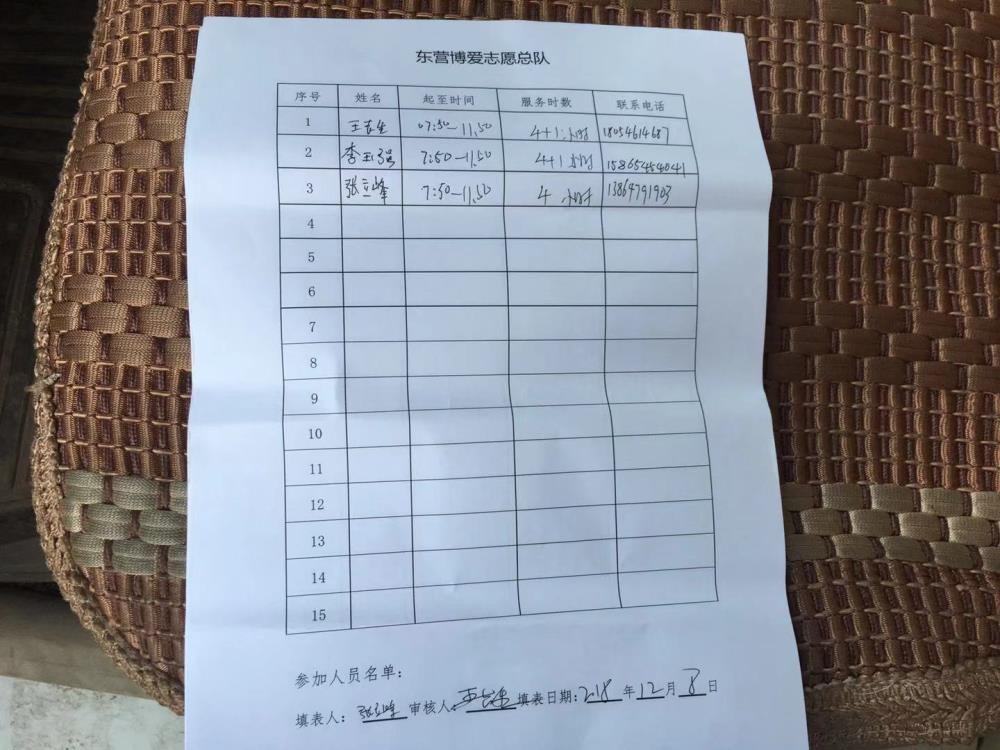 东营博爱志愿总队
序号 姓名 起至时间 服务时数 联系电话
1 07:50—11.50 4+1小时 18054614687
2 李玉强 7:50—11.50 4+1小时 15865454041
3 张立峰 7:50—11.50 4小时 13864791903
4
5
6
7
8
9
10
11
12
13
14
15
参加人员名单:
填表人: 张立峰 审核人: 填表日期: 2018年12月8日